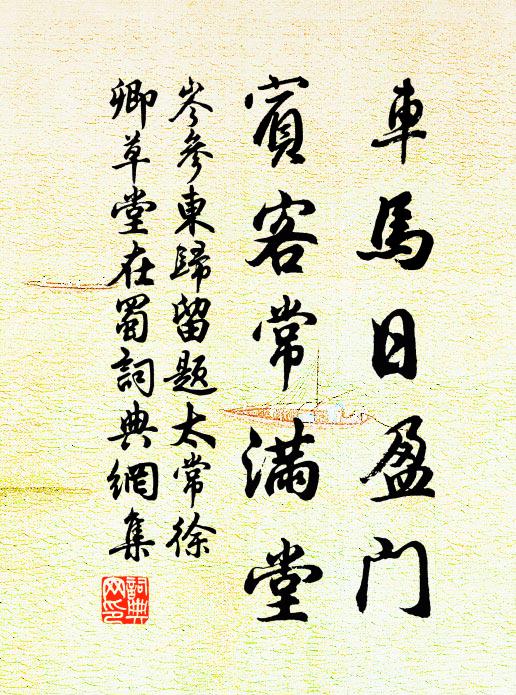 車馬日盈门
賓客常滿堂
岑參東歸留題太常徐
卿草堂在蜀詞典網集
詞典
网印